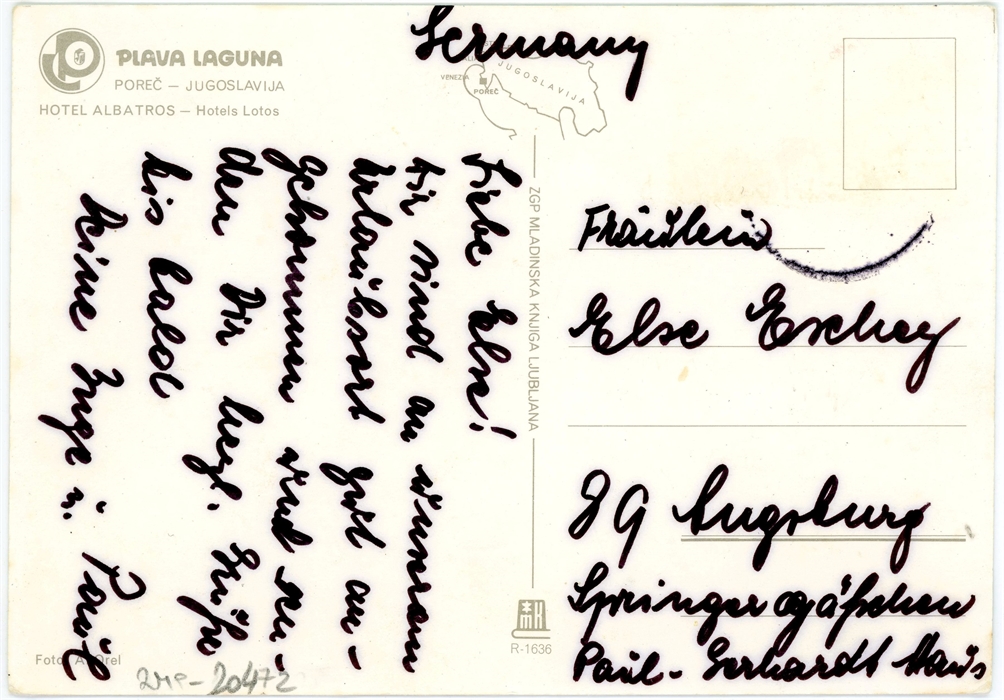 Germany
PLAVA LAGUNA
POREČ – JUGOSLAVIJA
HOTEL ALBATROS – Hotels Lotos
VENEZIA
POREČ
JUGOSLAVIJA
Liebe Else!
Wir sind an unserem
Urlaubsort gut an-
gekommen und sen-
den Dir herzl. Grüße
bis bald
Deine Inge u. Paul
ZGP MLADINSKA KNJIGA LJUBLJANA
Fräulein
Else Eschey
89 Augsburg
Springergäßchen
Paul-Gerhardt Haus
R-1636
Foto: A. Orel
20472